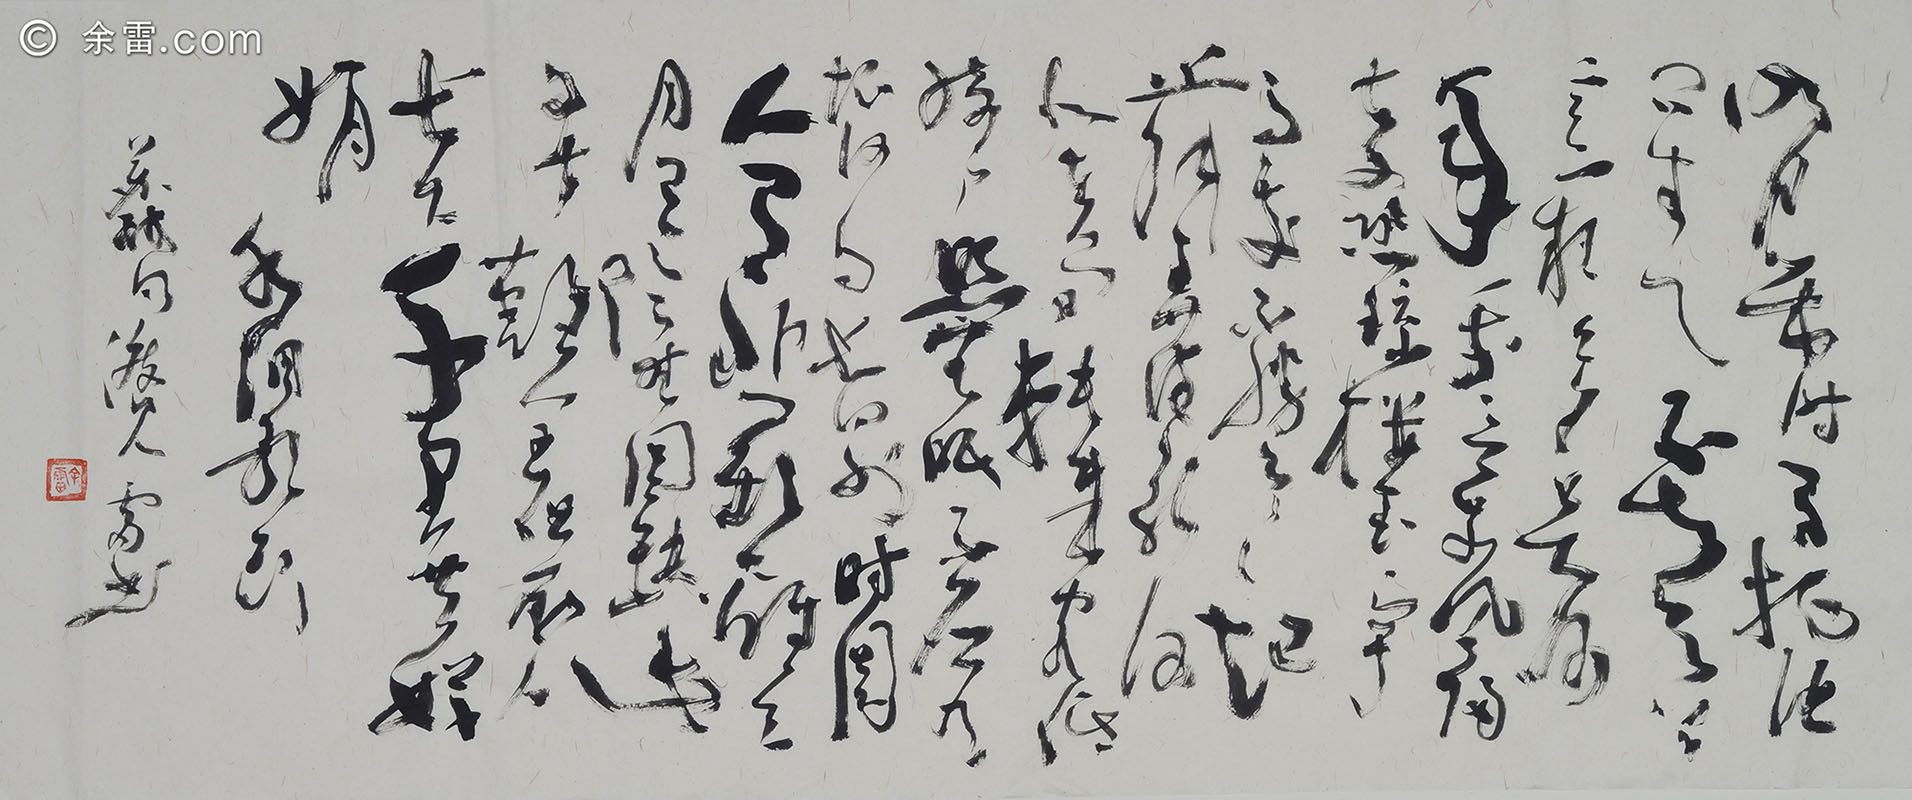 © 余雷.com
明月幾时有把酒
问青天不知天上
宫阙今夕是何
年我欲乘风歸
去又恐琼樓玉宇
高處不勝寒起
舞弄清影何
似在人间转朱阁低
绮户照無眠不应有
恨何事长向别时圆
人有悲欢離合
月有阴晴圆缺此
事古難全但願人
长久千里共婵
娟
水调歌头
苏轼句 雷书
余雷